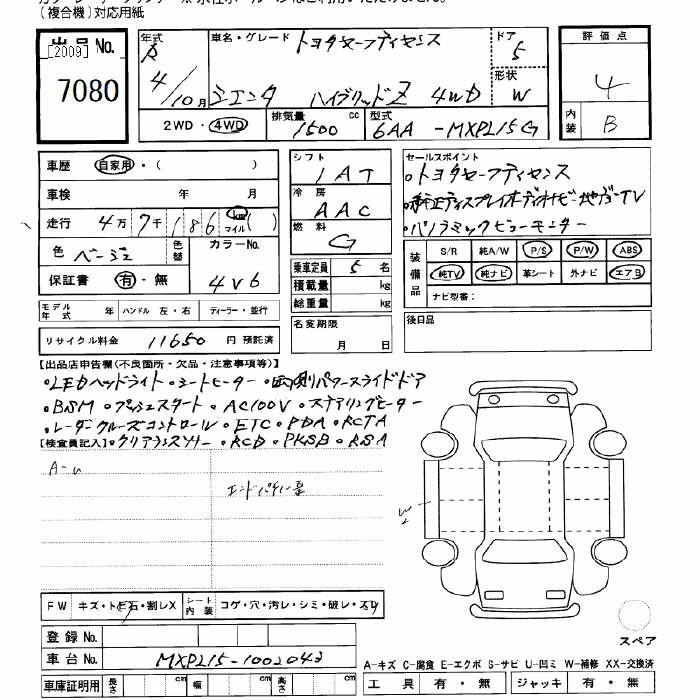 (複合機)対応用紙
出品 No.
[2009]
7080
年式 R 4/10月
車名・グレード トヨタセーフティセンス
シエンタ ハイブリッドZ 4WD
ドア 5
形状 W
評価点 4
内装 B
2WD・4WD
排気量 1500 cc
型式 6AA-MXPL15G
車歴 自家用・( )
車検 年 月
走行 4万7千186 km マイル ( )
色 ベージュ 色替 カラーNo. 4V6
保証書 有・無
モデル年式 年 ハンドル 左・右 ディーラー・並行
リサイクル料金 11650 円 預託済
シフト IAT
冷房 AAC
燃料 G
乗車定員 5 名
積載量 kg
総重量 kg
名変期限 月 日
セールスポイント
・トヨタセーフティセンス
・純正ディスプレイオーディオナビ・地デジTV
・パノラミックビューモニター
装備品
S/R 純A/W P/S P/W ABS
純TV 純ナビ 革シート 外ナビ エアB
ナビ型番:
後日品
【出品店申告欄(不良箇所・欠品・注意事項等)】
・LEDヘッドライト・シートヒーター・両側パワースライドドア
・BSM・プッシュスタート・AC100V・ステアリングヒーター
・レーダークルーズコントロール・ETC・PDA・RCTA
【検査員記入】・クリアランスソナー・RCD・PKSB・RSA
A-u
W2
FW キズ・トビ石・割レX シート内装 コゲ・穴・汚レ・シミ・破レ・スリ
登録 No.
車台 No. MXPL15-1002043
車庫証明用 長さ cm 幅 cm 高さ cm
スペア
A-キズ C-腐食 E-エクボ S-サビ U-凹ミ W-補修 XX-交換済
工具 有・無 ジャッキ 有・無